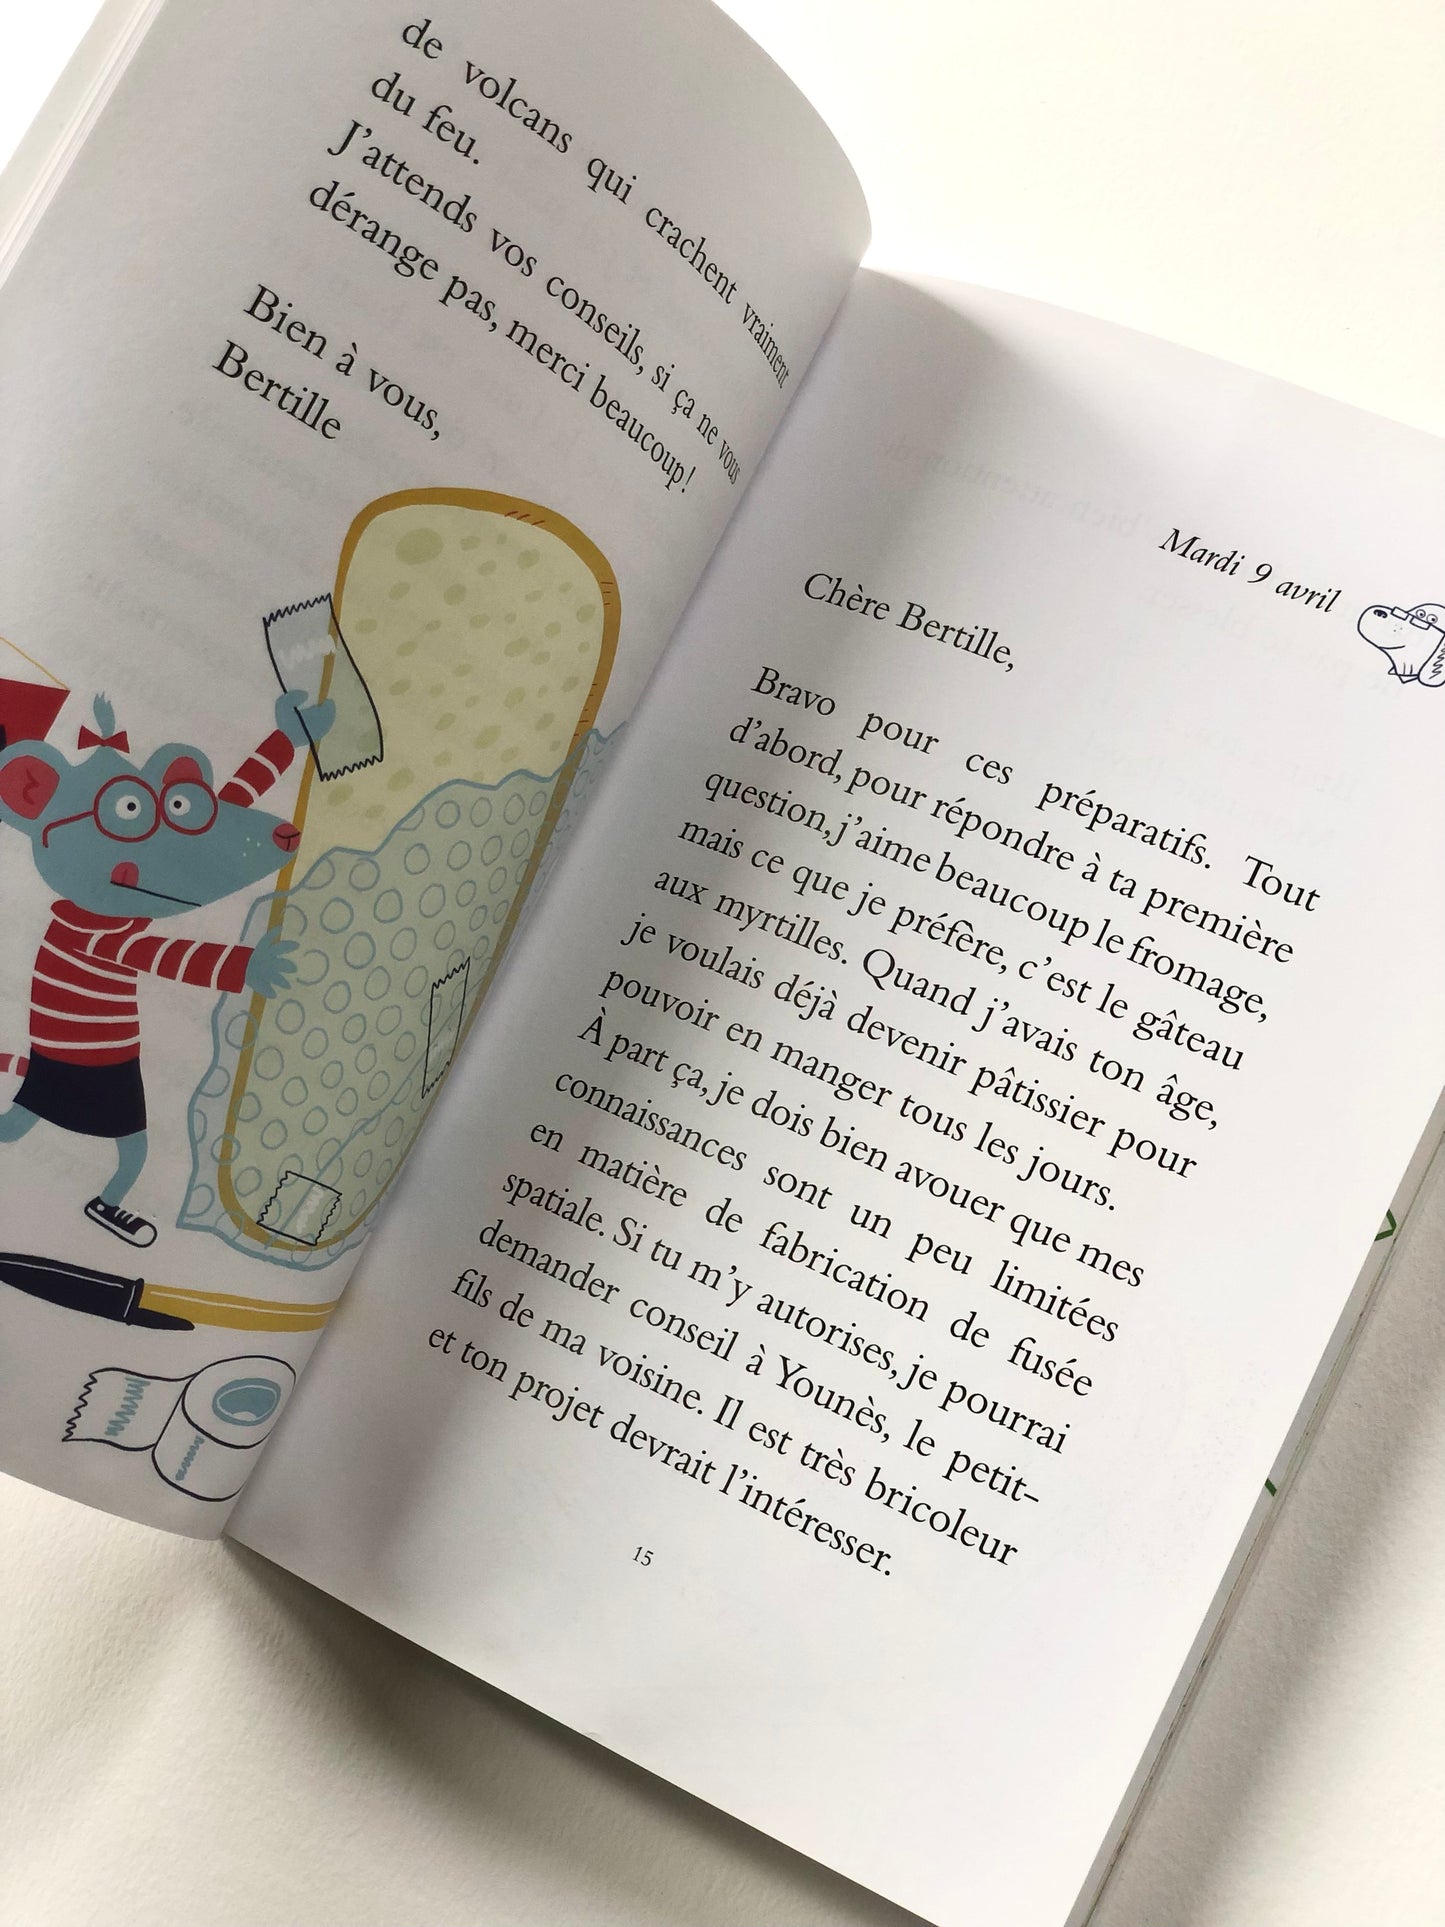 de volcans qui crachent vraiment
du feu.
J'attends vos conseils, si ça ne vous
dérange pas, merci beaucoup!
Bien à vous,
Bertille
Mardi 9 avril
Chère Bertille,
Bravo pour ces préparatifs. Tout
d'abord, pour répondre à ta première
question, j'aime beaucoup le fromage,
mais ce que je préfère, c'est le gâteau
aux myrtilles. Quand j'avais ton âge,
je voulais déjà devenir pâtissier pour
pouvoir en manger tous les jours.
À part ça, je dois bien avouer que mes
connaissances sont un peu limitées
en matière de fabrication de fusée
spatiale. Si tu m'y autorises, je pourrai
demander conseil à Younès, le petit-
fils de ma voisine. Il est très bricoleur
et ton projet devrait l'intéresser.
15